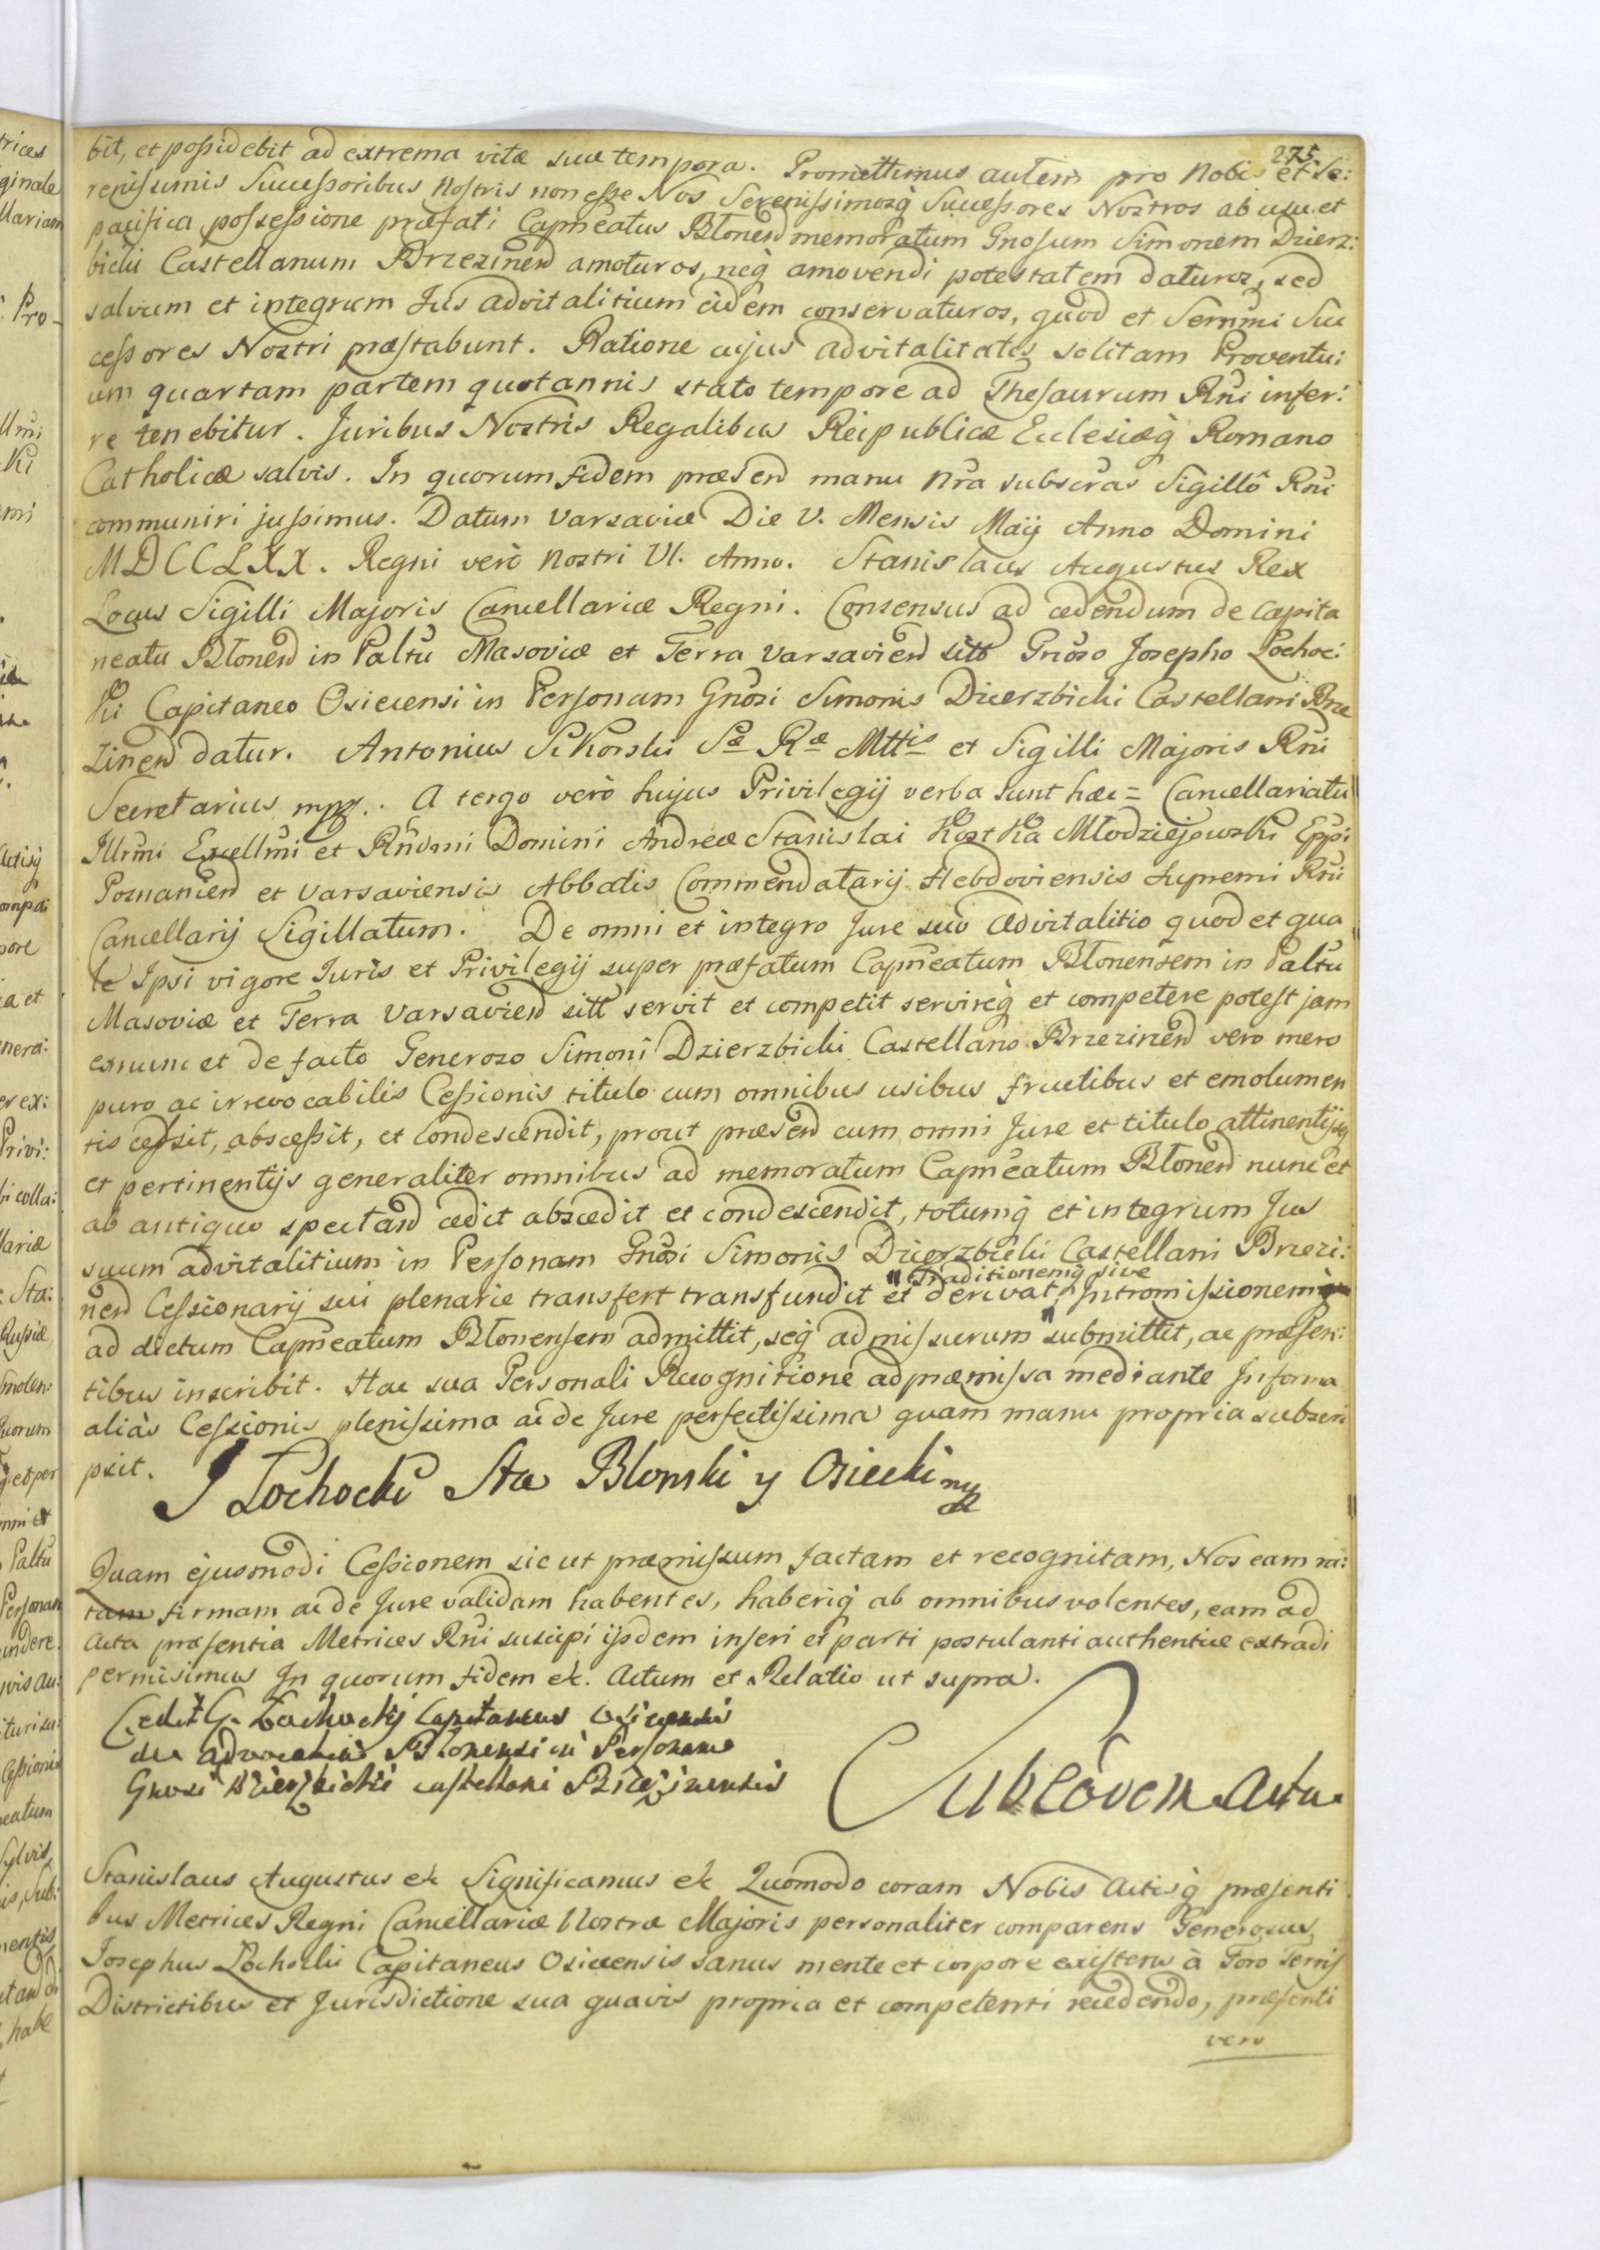 275
bit, et possidebit ad extrema vitæ suæ tempora. Promittimus autem pro Nobis et Se:
renissimis Successoribus Nostris non esse Nos Serenissimosq̀ Successores Nostros ab usu et
pacifica possessione præfati Capneatus Błonen memoratum Gnosum Simonem Dzierz:
bicki Castellanum Brzezinen amoturos, neq̀ amovendi potestatem daturos, sed
salvum et integrum Jus advitalitium eidem conservaturos, quod et Sermi Suc
cessores Nostri præstabunt. Ratione cujus advitalitatis solitam Proventu:
um quartam partem quotannis stato tempore ad Thesaurum Rni infer:
re tenebitur. Juribus Nostris Regalibus Reipublicæ Ecclesiæq̀ Romano
Catholicæ salvis. In quorum fidem præsen manu nra subscras Sigillô Rni
communiri jussimus. Datum Varsaviæ Die V. Mensis Maij Anno Domini
MDCCLXX. Regni verò nostri VI. Anno. Stanislaus Augustus Rex
Locus Sigilli Majoris Cancellariæ Regni. Consensus ad cedendum de Capita
neatu Błonen in Paltu Masoviæ et Terra Varsavien sitô Gnoso Josepho Łochoc:
ki Capitaneo Osiecensi in Personam Gnosi Simonis Dzierzbicki Castellani Brze
zinen datur. Antonius Sikorski Sæ Ræ Mttis et Sigilli Majoris Rni
Secretarius mpp. A tergo verò hujus Privilegij verba sunt hæc = Cancellariatu
Illrmi Excellmi et Rndmi Domini Andreæ Stanislai Kostka Młodziejowski Eppi
Posnanien et Varsaviensis Abbatis Commendatarij Hebdoviensis Supremi Rni
Cancellarij Sigillatum. De omni et integro Jure suo advitalitio quod et qua
le Ipsi vigore Juris et Privilegij super præfatum Capneatum Błonensem in Paltu
Masoviæ et Terra Varsavien sitt servit et competit servireq̀ et competere potest jam
exnunc et de facto Generoso Simoni Dzierzbicki Castellano Brzezinen vero mero
puro ac irrevocabilis Cessionis titulo cum omnibus usibus fructibus et emolumen
tis cessit, abscessit, et condescendit, prout præsen cum omni Jure et titulo attinentijsq̀
et pertinentijs generaliter omnibus ad memoratum Capneatum Błonen nunc et
ab antiquo spectan cedit abscedit et condescendit, totumq̀ et integrum Jus
suum advitalitium in Personam Gnosi Simonis Dzierzbicki Castellani Brzezi:
nen Cessionarij sui plenarie transfert transfundit et derivat, Intromissionemq̀
" Traditionemq̀ sive
ad dictum Capneatum Błonensem admittit, seq̀ admissurum submittit, ac præsen:
tibus inscribit. Hac sua Personali Recognitione ad præmissa mediante In forma
aliàs Cessionis plenissima ac de Jure perfectissima quam manu propria subscri
psit.
J Łochocki Sta Błonski y Osiecki mp
Quam ejusmodi Cessionem sic ut præmissum factam et recognitam, Nos eam ra:
tam firmam ac de Jure validam habentes, haberiq̀ ab omnibus volentes, eam ad
Acta præsentia Metrices Rni suscipi ijsdem inseri et parti postulanti authentice extradi
permisimus In quorum fidem etc. Actum et Relatio ut supra.
Cedit G. Łochocky Capitaneus Osiecensis
Błonensi in Personam
Gnosi Dzierzbicki castellani Brzezinensis
Acta
Stanislaus Augustus etc Significamus etc Quomodo coram Nobis Actisq̀ præsenti
bus Metrices Regni Cancellariæ Nostræ Majoris personaliter comparens Generosus
Josephus Łochocki Capitaneus Osiecensis sanus mente et corpore existens à Foro Terris
Districtibus et Jurisdictione sua quavis propria et competenti recedendo, præsenti
vero